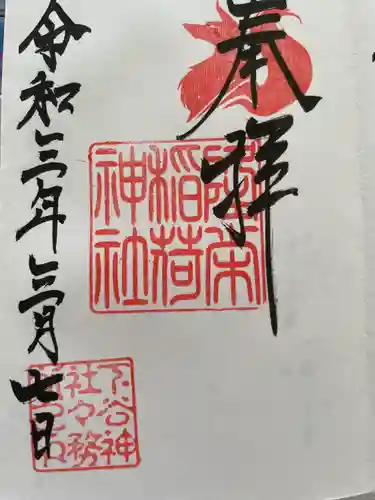 奉拝
隆栄
稲荷
神社
令和三年三月七日
下谷神
社々務